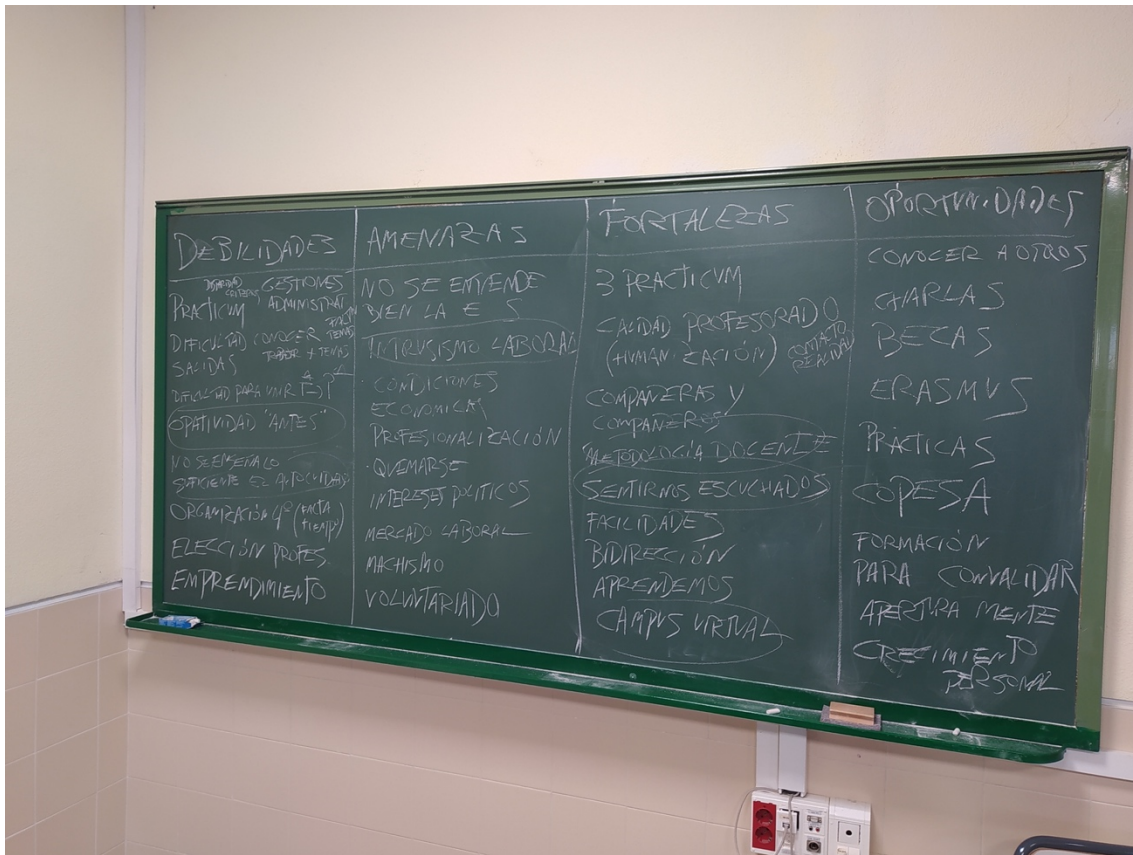 DEBILIDADES
DISPARIDAD CRITERIOS GESTIONES
PRACTICUM ADMINISTRAT
FALTAN TEMAS
DIFICULTAD CONOCER
SALIDAS + TEMAS
DIFICULTAD PARA UNIR T E P
OPATIVIDAD "ANTES"
NO SE ENSEÑA LO
SUFICIENTE EL AUTOCUIDADO
ORGANIZACIÓN 4º (FALTA
TIEMPO)
ELECCIÓN PROFES.
EMPRENDIMIENTO
AMENAZAS
NO SE ENTIENDE
BIEN LA E S
INTRUSISMO LABORAL
· CONDICIONES
ECONOMICAS
PROFESIONALIZACIÓN
· QUEMARSE
INTERESES POLITICOS
MERCADO LABORAL
MACHISMO
VOLUNTARIADO
FORTALEZAS
3 PRACTICUM
CALIDAD PROFESORADO
(HUMANIZACIÓN) CONTACTO
REALIDAD
COMPAÑERAS Y
COMPAÑEROS
METODOLOGÍA DOCENTE
SENTIRNOS ESCUCHADOS
FACILIDADES
BIDIRECCIÓN
APRENDEMOS
CAMPUS VIRTUAL
OPORTUNIDADES
CONOCER A OTROS
CHARLAS
BECAS
ERASMUS
PRÁCTICAS
COPESA
FORMACIÓN
PARA CONVALIDAR
APERTURA MENTE
CRECIMIENTO
PERSONAL